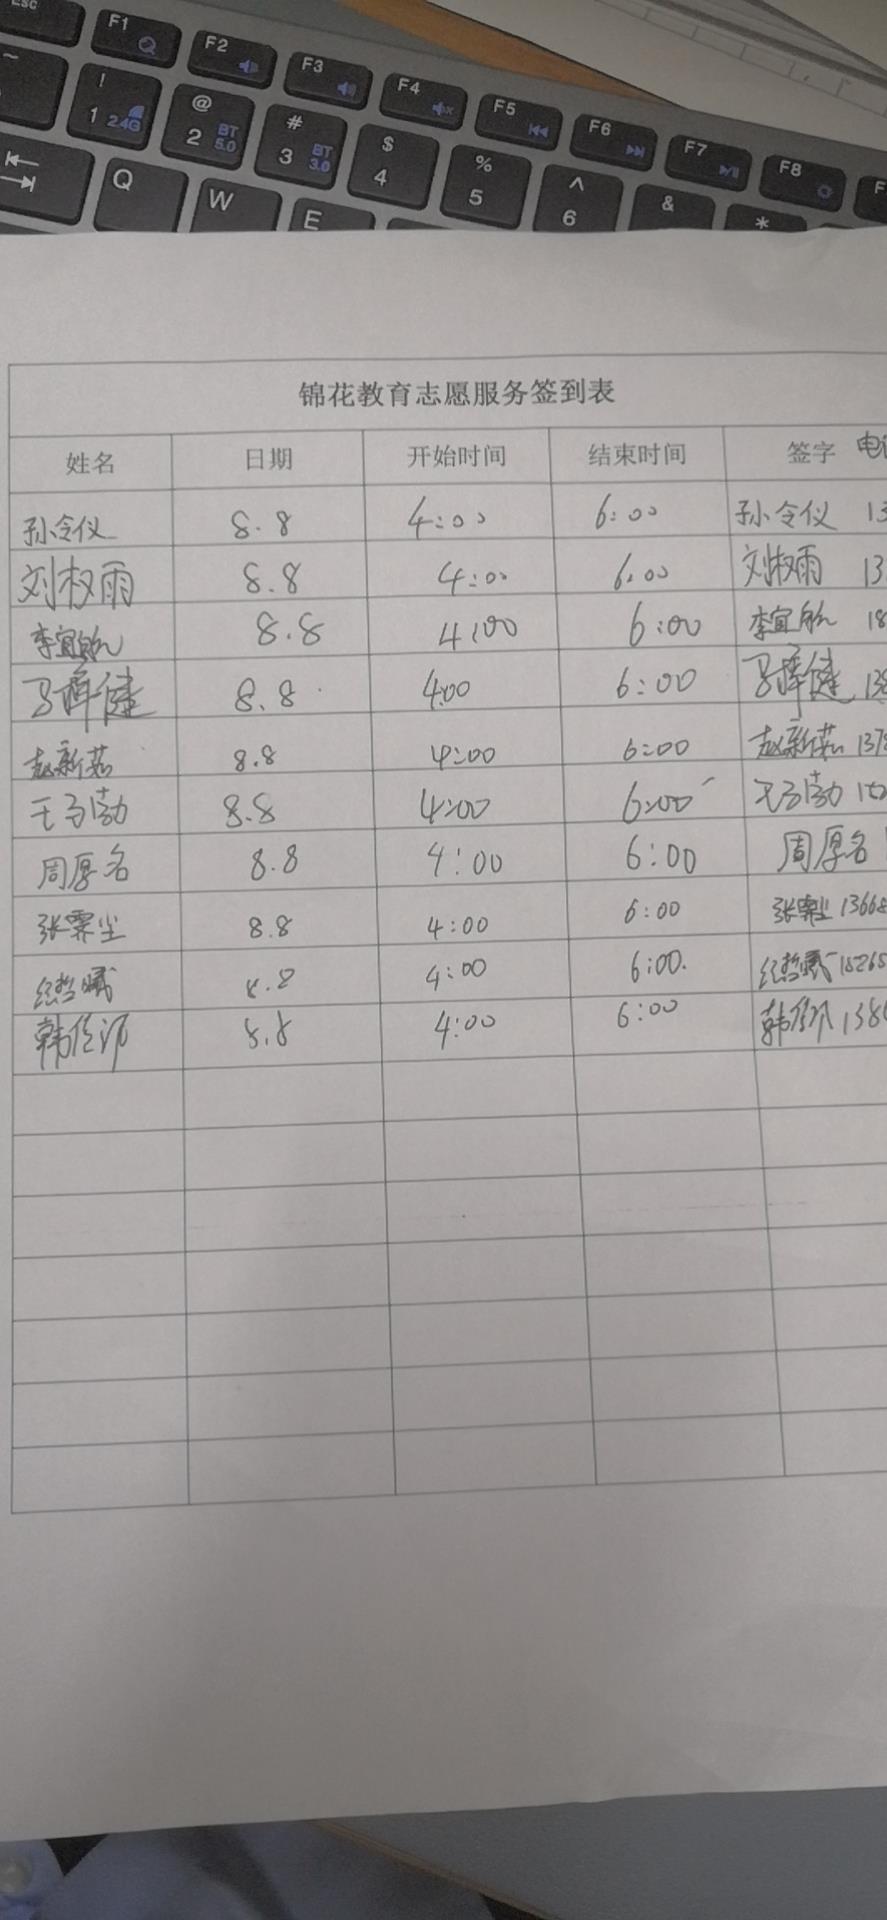 Esc F1 F2 F3 F4 F5 F6 F7 F8 F
! 1 2.4G @ 2 BT 5.0 # 3 BT 3.0 $ 4 % 5 ^ 6 & *
Q W E
锦花教育志愿服务签到表
姓名 日期 开始时间 结束时间 签字
孙令仪 8.8 4:00 6:00 孙令仪 13
刘权雨 8.8 4:00 6:00 刘权雨 13
李宜 8.8 4:00 6:00 李宜 18
8.8 4:00 6:00
赵新茹 8.8 4:00 6:00 赵新茹 137
8.8 4:00 6:00
周厚名 8.8 4:00 6:00 周厚名
张霁尘 8.8 4:00 6:00 张霁尘 13668
8.8 4:00 6:00 15265
韩 8.8 4:00 6:00 韩 138